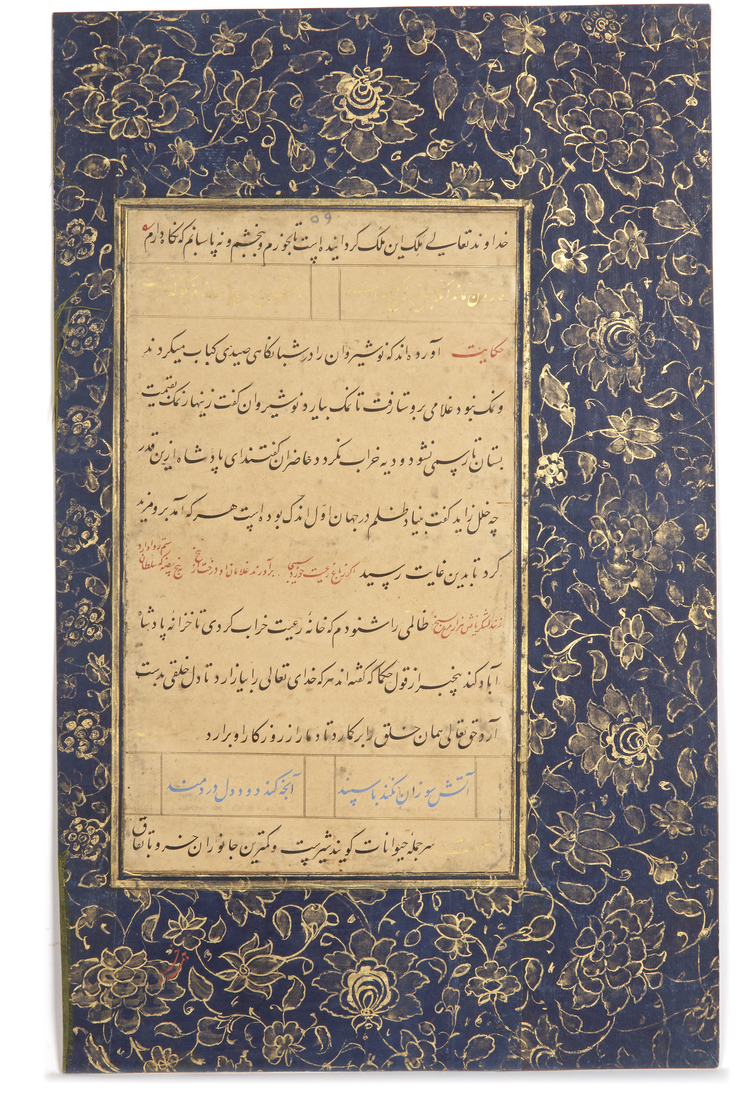 ۵۹
خداوند تعالی ملک این ملک گردانیده است تا بخورم و ببخشم و نه پاسبانم که نگاه دارم
حکایت آورده اند که نوشیروان را در شکارگاهی صیدی کباب میکردند
و نمک نبود غلامی بروستا رفت تا نمک بیارد نوشیروان گفت زینهار نمک بقیمت
بستان تا رسمی نشود و دیه خراب نگردد حاضران گفتند ای پادشاه ازین قدر
چه خلل زاید گفت بنیاد ظلم در جهان اول اندک بوده است هر که آمد برو مزید
کرد تا بدین غایت رسید اگر ز باغ رعیت خورد سیبی برآورند غلامان او درخت از بیخ
ظالمی را شنودم که خانه رعیت خراب کردی تا خزانه پادشاه
آباد کند بیخبر از قول حکما که گفته اند هر که خدای تعالی را بیازارد تا دل خلقی بدست
آرد حق تعالی همان خلق را بر گمارد تا دمار از روزگار او برارد
آتش سوزان نکند با سپند آنچه کند دود دل دردمند
سر جمله حیوانات گویند شیر است و کمترین جانوران خر و باتفاق